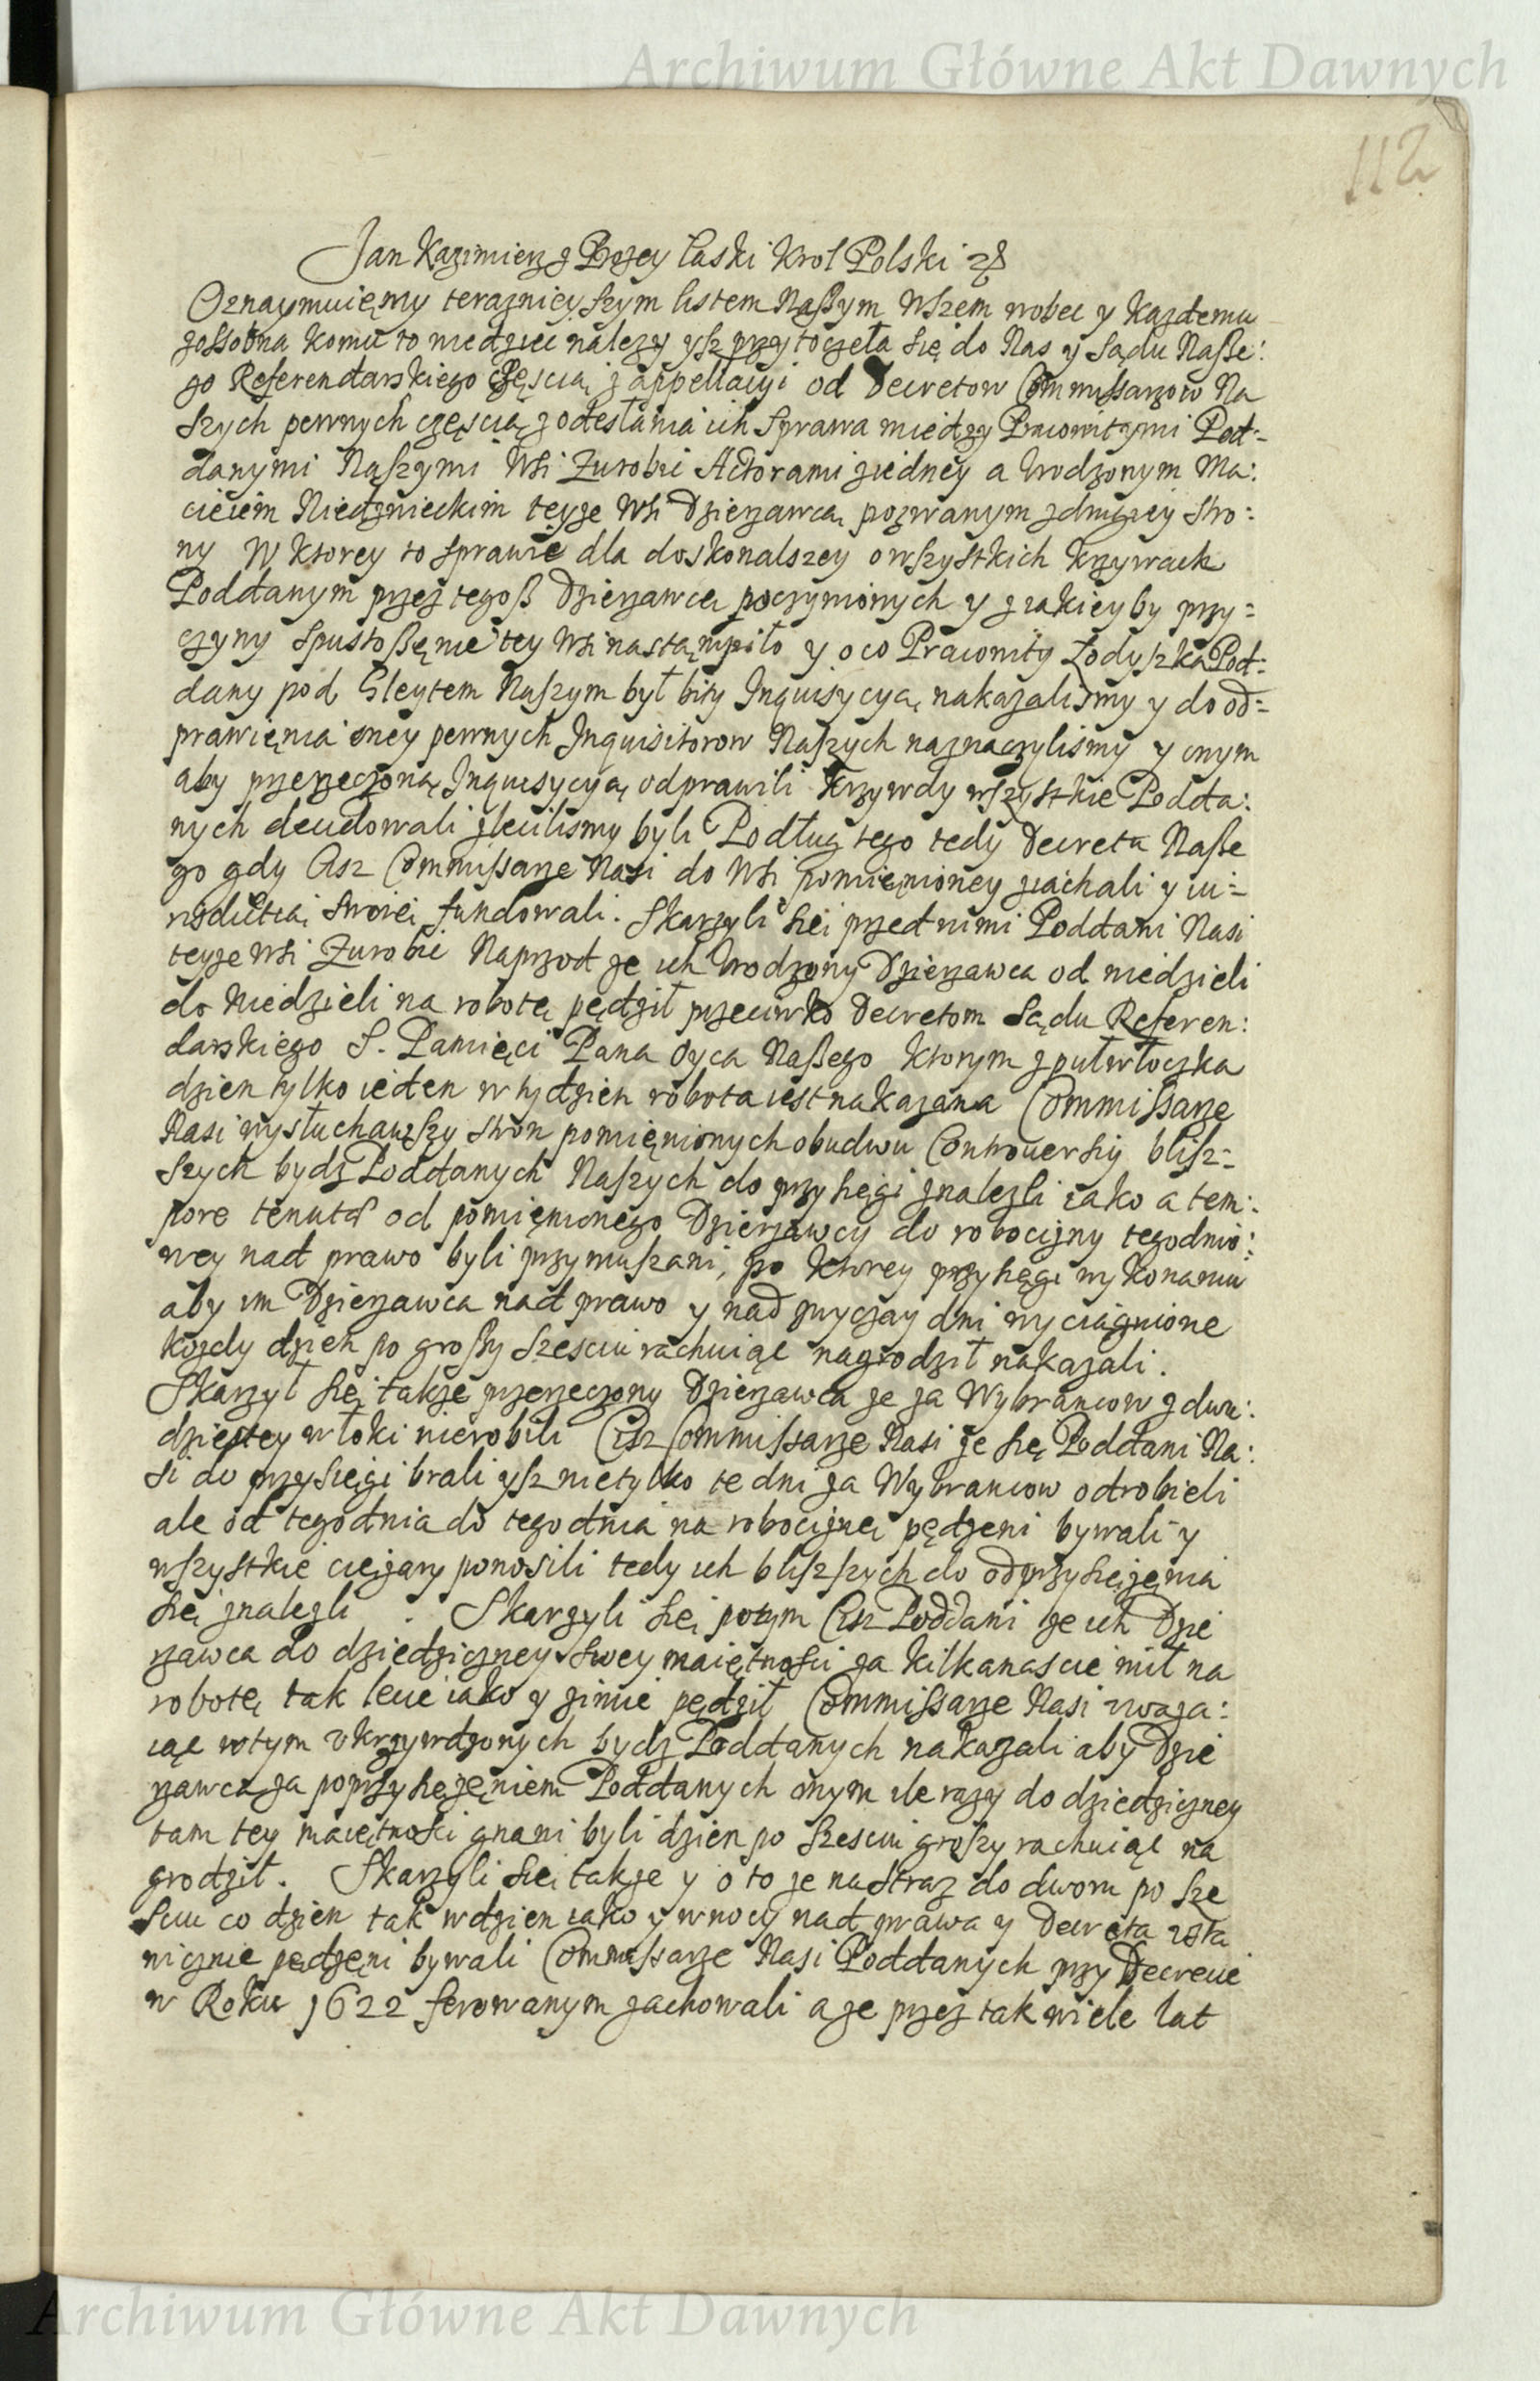 Archiwum Główne Akt Dawnych
112
Jan Kazimierz z Bozey łaski Krol Polski &c
Oznaymuięmy teraznieyszym listem Naszym wszem wobec y kazdemu
zossobna komu to wiedziec nalezy ysz przytoczeła się do Nas y Sądu Nasze:
go Referendarskiego częscią z appellacyi od Decretow Commissarzow Na
szych pewnych częscią z odesłania ich Sprawa miedzy Pracowitymi Pod:
danymi Naszymi Wsi Zurobic Actorami z iedney a Urodzonym Ma:
cieiem Niedzwieckim teyze Wsi Dzierzawcą pozwanym z drugiey stro:
ny W ktorey to sprawie dla doskonalszey o wszystkich krzywdach
Poddanym przez tegosz Dzierzawcę poczynionych y z iakieyby przy:
czyny spustoszęnie tey Wsi nastąmpiło y o co Pracowity Łodyszka Pod:
dany pod Gleytem Naszym był bity Inquisycyą nakazalismy y do od:
prawięnia oney pewnych Inquisitorow Naszych naznaczylismy y onym
aby przerzeczoną Inquisycyą odprawili krzywdy wszystkie Podda:
nych deudowali zlecilismy byli Podług tego tedy Decretu Nasze
go gdy Cisz Commissarze Nasi do Wsi pomięnioney ziachali y iu:
risdictią swoię fundowali. Skarzyli się przed nimi Poddani Nasi
teyze Wsi Zurobic Naprzod ze ich Urodzony Dzierzawca od niedzieli
do Niedzieli na robotę pędził przeciwko Decretom Sądu Referen:
darskiego S. Pamięci Pana Oyca Naszego ktorym z pułwłoczka
dzien tylko ieden w tydzien robota iest nakazana Commissarze
Nasi wysłuchawszy stron pomięnionych obudwu Controuersiy blisz:
szych bydz Poddanych Naszych do przysięgi znalezli iako a tem:
pore tenutæ od pomięnionego Dzierzawcy do robocizny tegodnio:
wey nad prawo byli przymuszani, po ktorey przysięgi wykonaniu
aby im Dzierzawca nad prawo y nad zwyczay dni wyciągnione
kozdy dzien po groszy szesciu rachuiąc nagrodził nakazali.
Skarzył się takze przerzeczony Dzierzawca ze za Wybrancow z dwu:
dziestey włoki nierobili Cisz Commissarze Nasi ze się Poddani Na:
si do przysięgi brali ysz nietylko te dni za Wybrancow odrobieli
ale od tegodnia do tegodnia na robociznę pędzeni bywali y
wszystkie cięzary ponosili tedy ich bliszszych do odprzysięzęnia
się znalezli. Skarzyli się potym Cisz Poddani ze ich Dzie
rzawca do dziedziczney swey maiętnosci za kilkanascie mil na
robotę tak lecie iako y zimie pędził Commissarze Nasi uwaza:
iąc w tym ukrzywdzonych bydz Poddanych nakazali aby Dzie
rzawca za poprzysięzęniem Poddanych onym ile razy do dziedziczney
tam tey maiętnosci gnani byli dzien po szesciu groszy rachuiąc na
grodził. Skarzyli się takze y o to ze na straz do dworu po sze
sciu co dzien tak w dzien iako y w nocy nad prawa y Decreta usta
wicznie pędzęni bywali Commissarze Nasi Poddanych przy Decrecie
w Roku 1622 ferowanym zachowali a ze przez tak wiele lat
Archiwum Główne Akt Dawnych